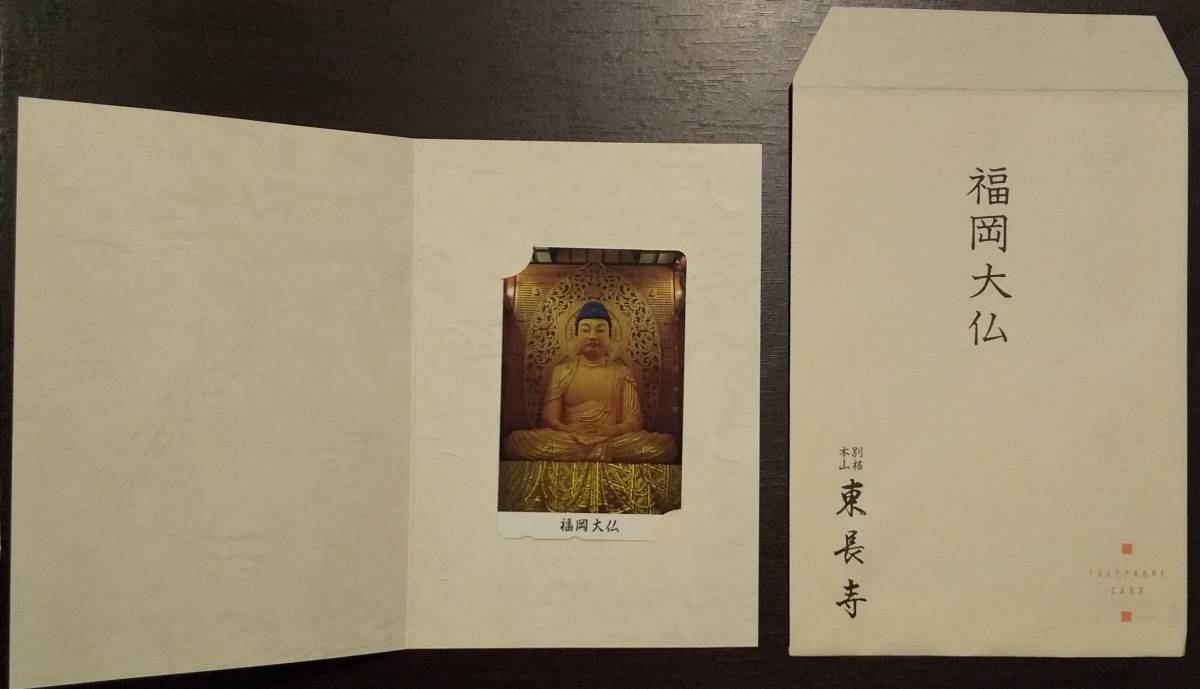 福岡大仏
福岡大仏
別格
本山
東長寺
TELEPHONE
CARD